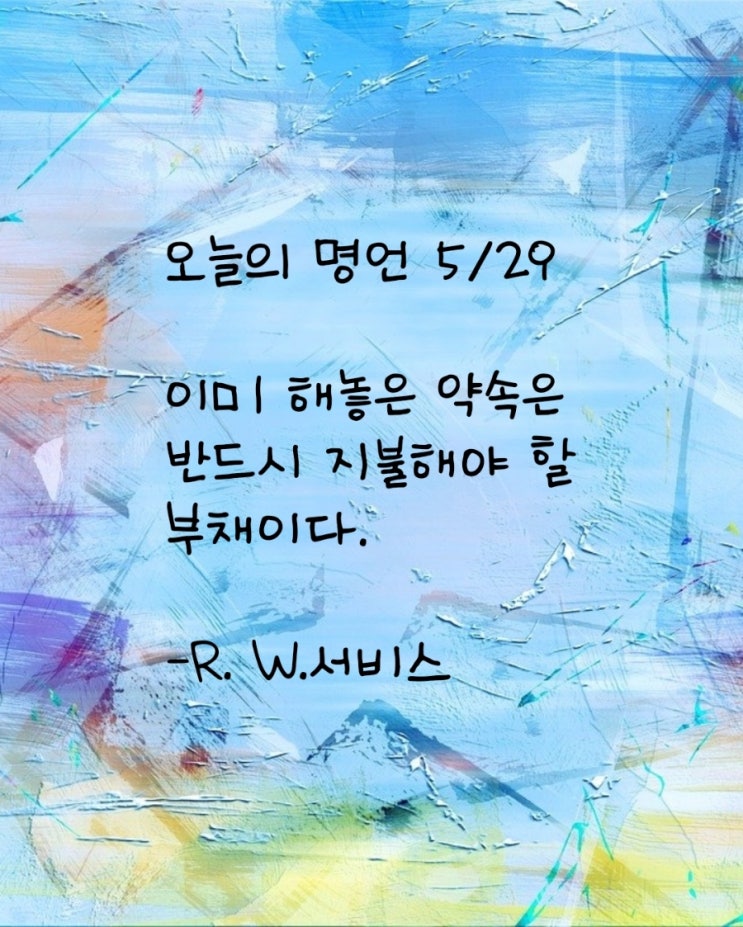 오늘의 명언 5/29
이미 해놓은 약속은
반드시 지불해야 할
부채이다.
-R. W.서비스